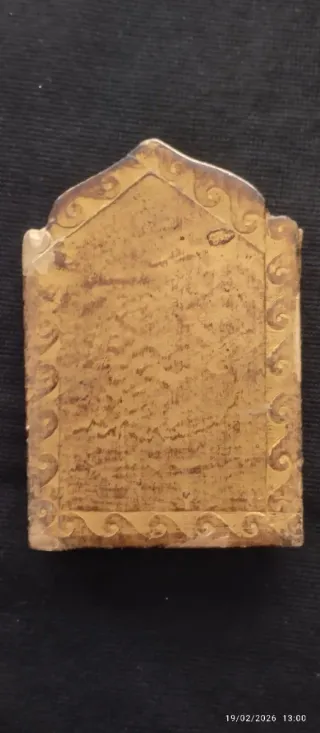 19/02/2026 13:00